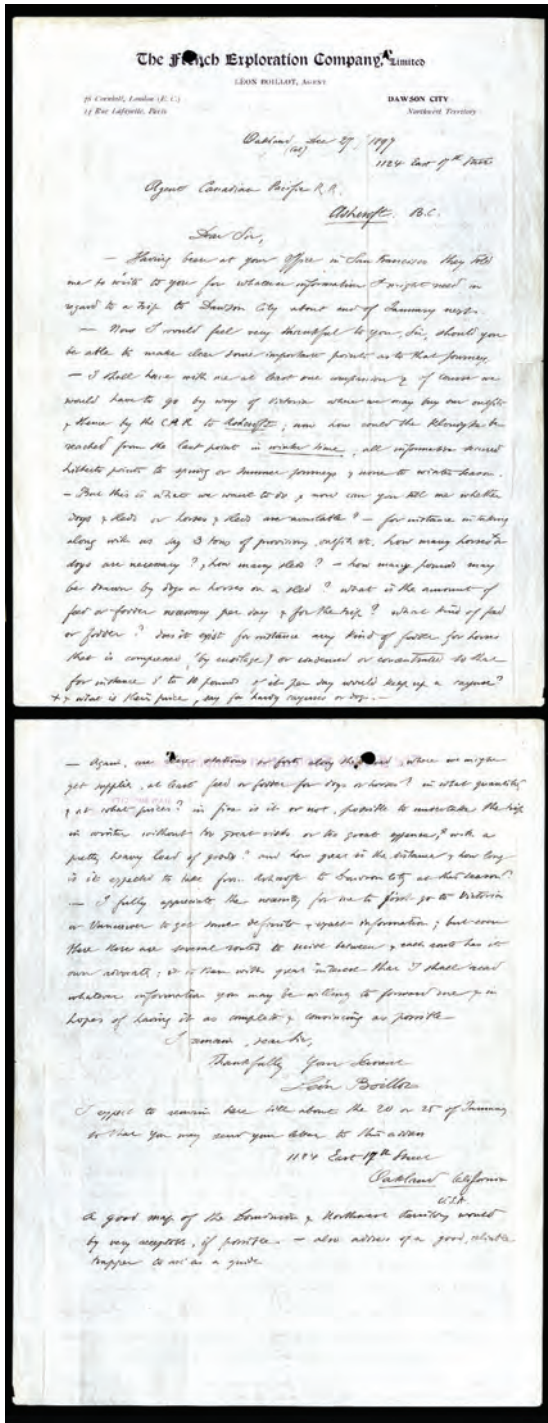 The French Exploration Company, Limited
LÉON BOILLOT, AGENT
76 Cornhill, London (E. C.)
24 Rue Lafayette, Paris
DAWSON CITY
Northwest Territory
Oakland (Cal) Dec 27, 1897
1124 East 17th Street
Agent Canadian Pacific R.R.
Ashcroft. B.C.
Dear Sir,
— Having been at your office in San Francisco they told
me to write to you for whatever information I might need in
regard to a trip to Dawson City about end of January next.
— Now I would feel very thankful to you, Sir, should you
be able to make clear some important points as to that journey
— I shall have with me at least one companion & of course we
would have to go by way of Victoria where we may buy our outfit
& thence by the C.P.R. to Ashcroft; now how could the Klondyke be
reached from the last point in winter time, all information secured
hitherto points to spring or summer journeys & none to winter season.
— But this is what we want to do & now can you tell me whether
dogs & sleds or horses & sleds are available? — for instance in taking
along with us say 3 tons of provisions, outfit etc. how many horses or
dogs are necessary?, how many sleds? — how many pounds may
be drawn by dogs or horses on a sled? what is the amount of
feed or fodder necessary per day & for the trip? what kind of feed
or fodder? does it exist for instance any kind of fodder for horses
that is compressed (by ensilage) or condensed or concentrated so that
for instance 8 to 10 pounds of it per day would keep up a cayuse?
& what is their price, say for hardy cayuses or dogs. —
— Again, are there stations or forts along the road, where we might
get supplies, at least feed or fodder for dogs or horses? in what quantity
& at what prices? in fine is it or not, possible to undertake the trip
in winter without too great risks or too great expense, & with a
pretty heavy load of goods? and how great is the distance & how long
is it expected to take from Ashcroft to Dawson City at that season?
— I fully appreciate the necessity for me to first go to Victoria
or Vancouver to get some definite & exact information; but even
there there are several routes to decide between & each route has its
own advocate; it is then with great interest that I shall read
whatever information you may be willing to forward me & in
hopes of having it as complete & convincing as possible
I remain, dear Sir,
Thankfully Your Servant
Léon Boillot
I expect to remain here till about the 20 or 25 of January
so that you may send your letter to this address
1124 East 17th Street
Oakland California
U.S.A.
A good map of the Dominion & Northwest Territory would
be very acceptable, if possible. — also address of a good, reliable
trapper to act as a guide